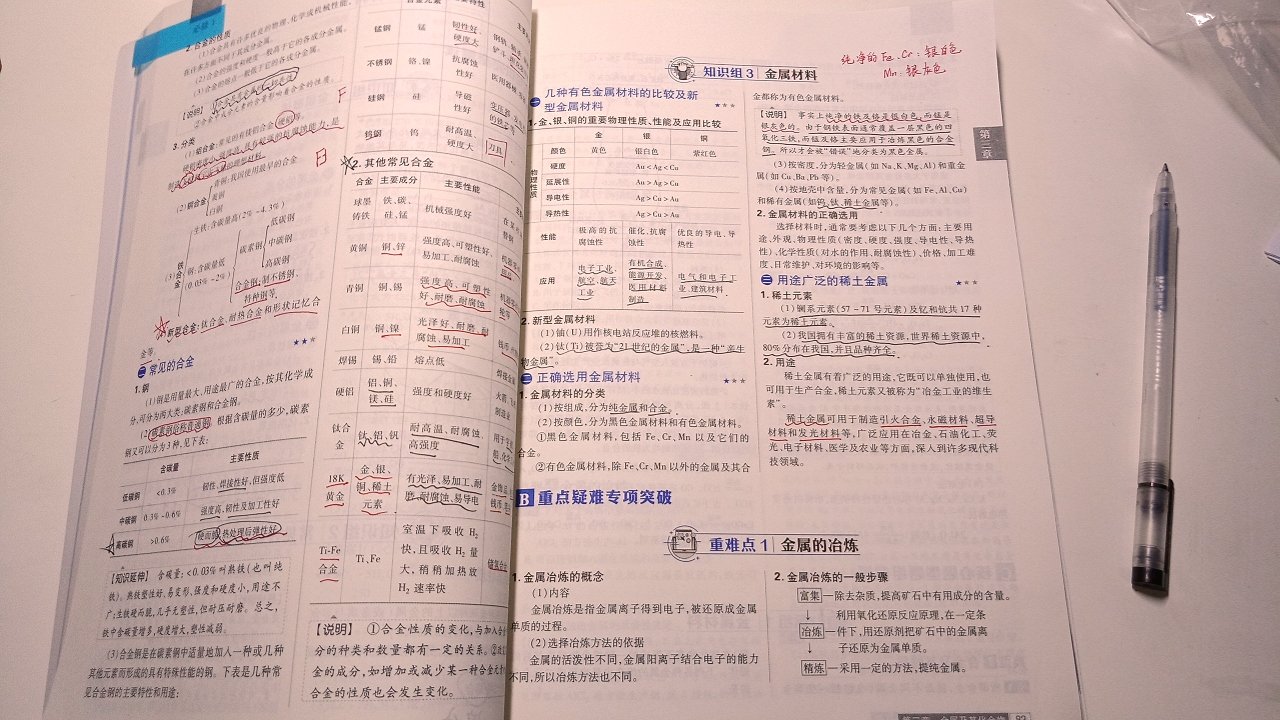 必修1
2.合金的性质
(1)合金具有许多优良的物理、化学或机械性能,
许多方面不同于其成分金属。
(2)合金的硬度一般高于它的各成分金属。
(3)合金的熔点一般低于它的各成分金属。
【说明】
3.分类
(2)铜合金
青铜:我国使用最早的合金
黄铜
白铜
(3)
生铁:含碳量高(2%~4.3%)
钢:含碳量低
0.03%~2%
碳素钢
低碳钢
中碳钢
高碳钢
合金钢,如不锈钢、
特种钢等。
新型合金:钛合金、耐热合金和形状记忆合
金等。
二 常见的合金
★★★
1.钢
(1)钢是用量最大、用途最广的合金,按其化学成
分,可分为两大类:碳素钢和合金钢。
根据含碳量的多少,碳素
钢又可以分为3种,见下表:
含碳量 主要性质
低碳钢 <0.3% 韧性、焊接性好,但强度低
中碳钢 0.3%~0.6% 强度高,韧性及加工性好
高碳钢 >0.6% 硬而脆,热处理后弹性好
【知识延伸】 含碳量:<0.03%叫熟铁(也叫纯
铁)。熟铁塑性好,易变形,强度和硬度小,用途不
广;生铁硬而脆,几乎无塑性,但耐压耐磨。总之,
铁中含碳量增多,硬度增大,塑性减弱。
(3)合金钢是在碳素钢中适量地加人一种或几种
其他元素而形成的具有特殊性能的钢。下表是几种常
见合金钢的主要特征和用途:
合金元素
锰钢 锰 韧性好、
硬度大
不锈钢 铬、镍 抗腐蚀
性好
硅钢 硅 导磁
性好
钨钢 钨 耐高温、
硬度大
刀具
2.其他常见合金
合金 主要成分 主要性能
球墨
铸铁 铁、碳、
硅、锰 机械强度好
黄铜 铜、锌 强度高、可塑性好、
易加工、耐腐蚀
青铜 铜、锡 强度高、可塑性
好、耐磨、耐腐蚀
白铜 铜、镍 光泽好、耐磨、耐
腐蚀、易加工
焊锡 锡、铅 熔点低
硬铝 铝、铜、
镁、硅 强度和硬度好
钛合
金 钛、铝、钒 耐高温、耐腐蚀、
高强度
18K
黄金 金、银、
铜、稀土
元素 有光泽、易加工、耐
磨、耐腐蚀、易导电
Ti-Fe
合金 Ti、Fe 室温下吸收H₂
快,且吸收H₂量
大,稍稍加热放
H₂速率快
【说明】 ①合金性质的变化,与加入合
分的种类和数量都有一定的关系。
金的成分,如增加或减少某一种合金元
合金的性质也会发生变化。
知识组3 金属材料
纯净的Fe、Cr:银白色
Mn:银灰色
一 几种有色金属材料的比较及新
型金属材料
★★★
1.金、银、铜的重要物理性质、性能及应用比较
金 银 铜
物理性质
颜色 黄色 银白色 紫红色
硬度 Au<Ag<Cu
延展性 Au>Ag>Cu
导电性 Ag>Cu>Au
导热性 Ag>Cu>Au
性能 极高的抗
腐蚀性 催化、抗腐
蚀性 优良的导电、导
热性
应用 电子工业、
航空、航天
工业 有机合成、
能源开发、
医用材料
制造 电气和电子工
业、建筑材料
2.新型金属材料
(1)铀(U)用作核电站反应堆的核燃料。
(2)钛(Ti)被誉为“21世纪的金属”,是一种“亲生
物金属”。
二 正确选用金属材料
★★★
1.金属材料的分类
(1)按组成,分为纯金属和合金。
(2)按颜色,分为黑色金属材料和有色金属材料。
①黑色金属材料,包括Fe、Cr、Mn以及它们的
合金。
②有色金属材料,除Fe、Cr、Mn以外的金属及其合
金都称为有色金属材料。
【说明】 事实上纯净的铁及铬是银白色,而锰是
银灰色的。由于钢铁表面通常覆盖一层黑色的四
氧化三铁,而锰及铬主要应用于冶炼黑色的合金
钢。所以才会被“错误”地分类为黑色金属。
(3)按密度,分为轻金属(如Na、K、Mg、Al)和重金
属(如Cu、Ba、Pb等)。
(4)按地壳中含量,分为常见金属(如Fe、Al、Cu)
和稀有金属(如钨、钛、稀土金属等)。
2.金属材料的正确选用
选择材料时,通常要考虑以下几个方面:主要用
途、外观、物理性质(密度、硬度、强度、导电性、导热
性)、化学性质(对水的作用、耐腐蚀性)、价格、加工难
度、日常维护、对环境的影响等。
三 用途广泛的稀土金属
★★★
1.稀土元素
(1)镧系元素(57~71号元素)及钪和钇共17种
元素为稀土元素。
(2)我国拥有丰富的稀土资源,世界稀土资源中,
80%分布在我国,并且品种齐全。
2.用途
稀土金属有着广泛的用途,它既可以单独使用,也
可用于生产合金,稀土元素又被称为“冶金工业的维生
素”。
稀土金属可用于制造引火合金、永磁材料、超导
材料和发光材料等,广泛应用在冶金、石油化工、荧
光、电子材料、医学及农业等方面,深入到许多现代科
技领域。
第三章
B 重点疑难专项突破
重难点1 金属的冶炼
1.金属冶炼的概念
(1)内容
金属冶炼是指金属离子得到电子,被还原成金属
单质的过程。
(2)选择冶炼方法的依据
金属的活泼性不同,金属阳离子结合电子的能力
不同,所以冶炼方法也不同。
2.金属冶炼的一般步骤
富集—除去杂质,提高矿石中有用成分的含量。
冶炼—利用氧化还原反应原理,在一定条
件下,用还原剂把矿石中的金属离
子还原为金属单质。
精炼—采用一定的方法,提纯金属。